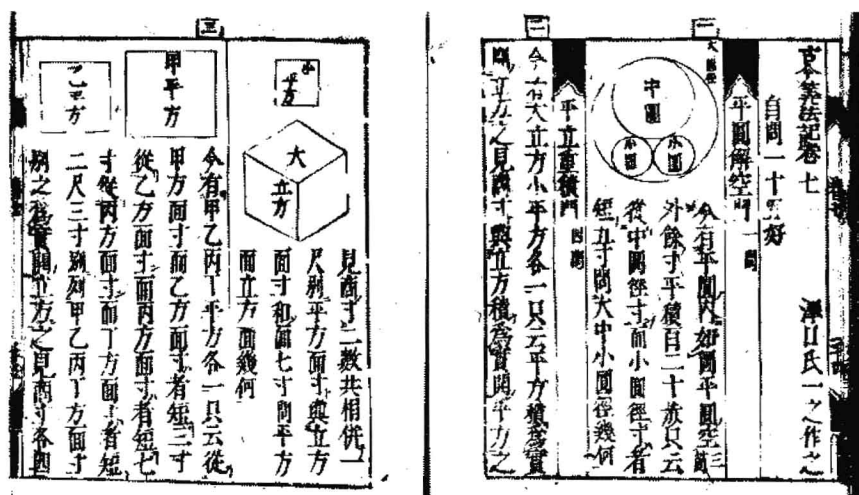 古今算法記卷七
澤口氏一之作之
自問一十五好
平圓解空門 一問
一
中圓
小圓
小圓
今有平圓內如圖平圓空三箇
外餘寸平積百二十歩只云
從中圓徑寸而小圓徑寸者
短五寸問大中小圓徑幾何
平立重積門 四問
二
今有大立方小平方各一只云平方積爲實
開立方之見商寸與立方積爲實開平方之
小平方
大立方
見商寸二數共相併一
尺別平方面寸與立方
面寸和而七寸問平方
面立方面幾何
三
甲平方
乙平方
今有甲乙丙丁平方各一只云從
甲方面寸而乙方面寸者短二寸
從乙方面寸而丙方面寸者短七
寸從丙方面寸而丁方面寸者短
二尺三寸別列甲乙丙丁方面寸
別之爲實開立方之見商寸各四